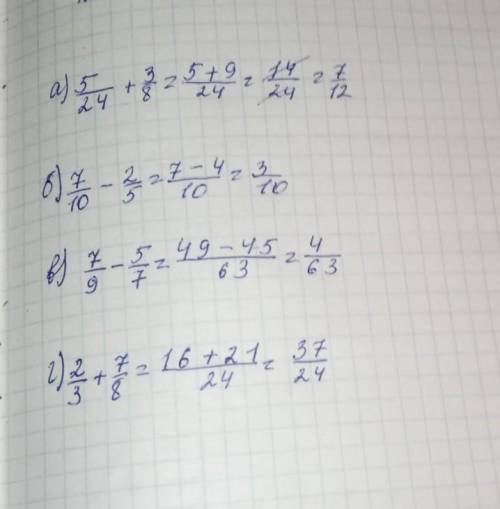 а) 5/24 + 3/8 = 5+9/24 = 14/24 = 7/12
б) 7/10 - 2/5 = 7-4/10 = 3/10
в) 7/9 - 5/7 = 49-45/63 = 4/63
г) 2/3 + 7/8 = 16+21/24 = 37/24